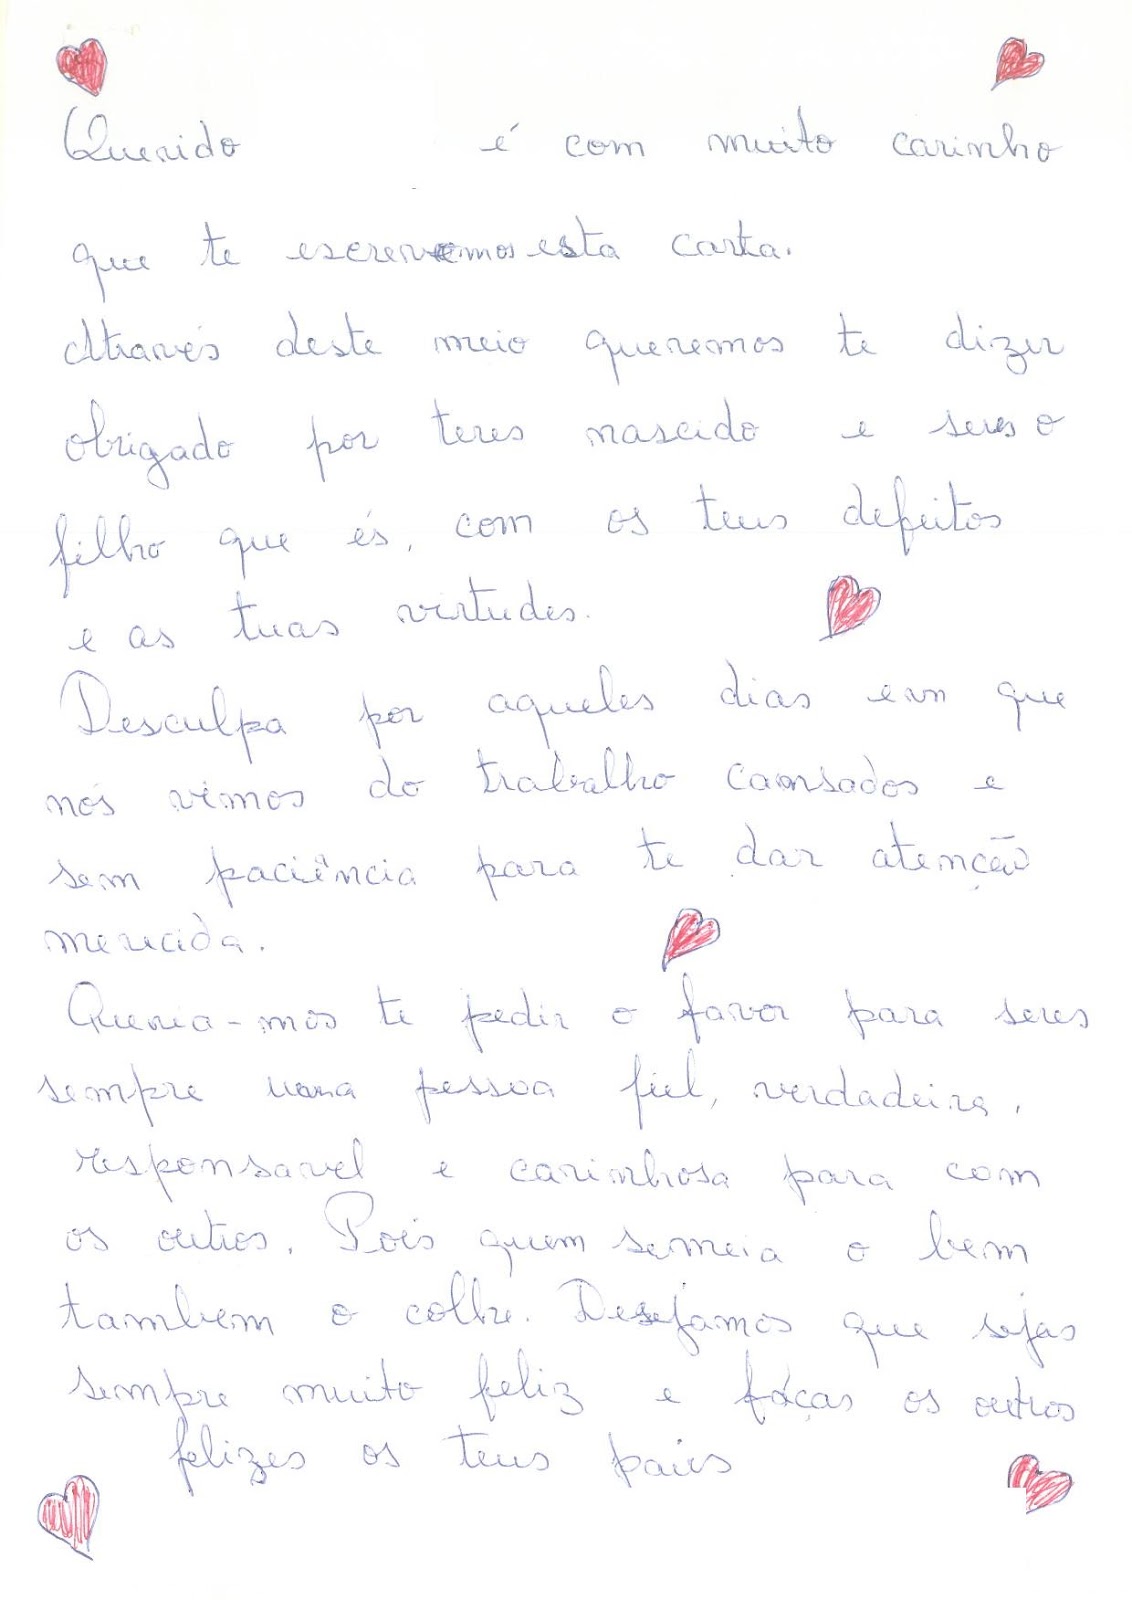 Querido é com muito carinho
que te escrevemos esta carta.
Através deste meio queremos te dizer
obrigado por teres nascido e seres o
filho que és, com os teus defeitos
e as tuas virtudes.
Desculpa por aqueles dias em que
nós vimos do trabalho cansados e
sem paciência para te dar atenção
merecida.
Queria-mos te pedir o favor para seres
sempre uma pessoa fiel, verdadeira,
responsavel e carinhosa para com
os outros. Pois quem semeia o bem
tambem o colhe. Desejamos que sejas
sempre muito feliz e fáças os outros
felizes os teus pais